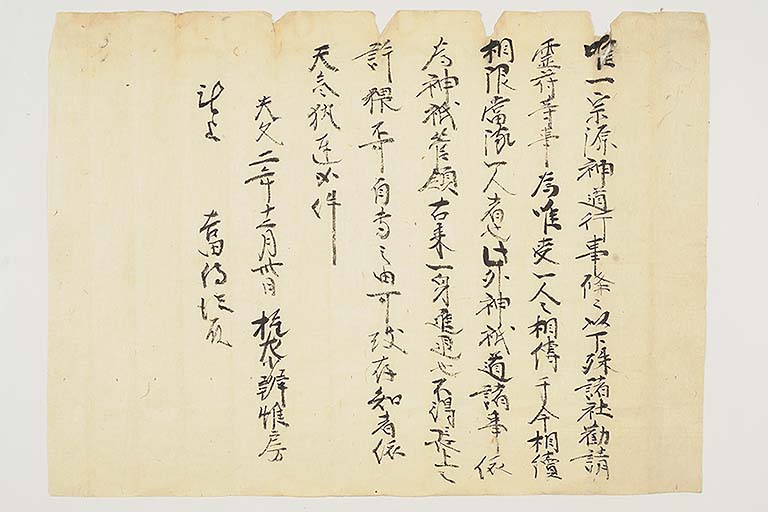 唯一宗源神道行事條々以下殊諸社勧請
霊符等事為唯受一人之相傳于今相續
相限當流一人者也此外神祇道諸事依
為神祇管領古来一身進退也不得長上之
許猥不可自専之由可致存知者依
天気執達如件
天文二年十二月廿日 惟房
謹上 吉田侍従殿